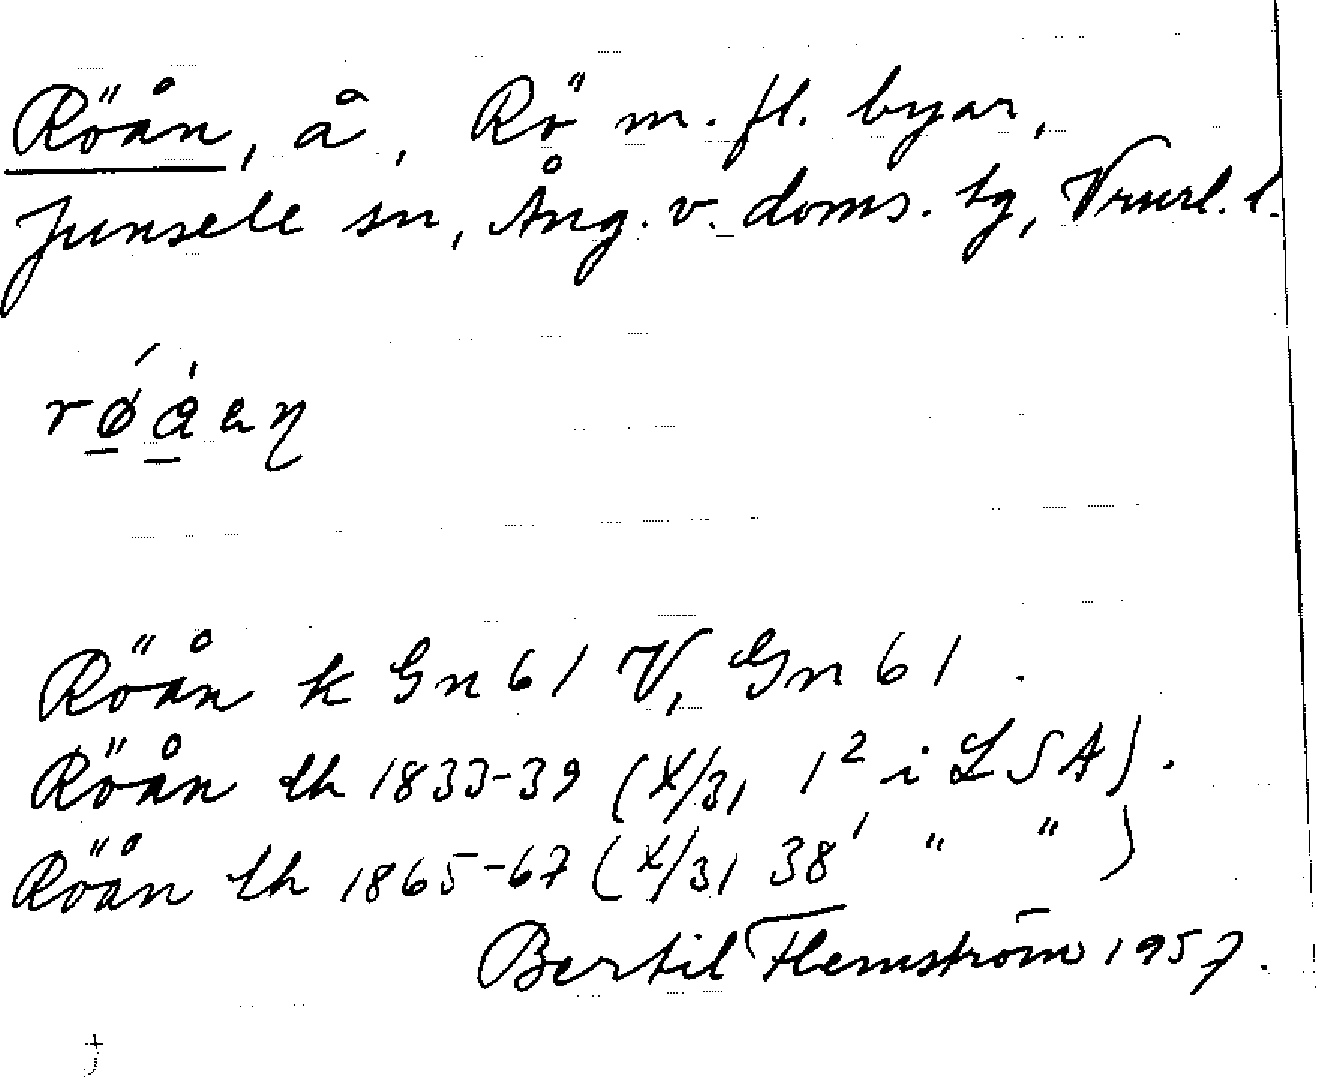 Röån, å, Rö m. fl. byar,
Junsele sn, Ång. v. doms. tg, Vnrl. l.
rǿ̱å̱an
Röån k Gn 61 V, Gn 61.
Röån th 1833-39 (X/31 1² i LSA).
Röån th 1865-67 (X/31 38' " ")
Bertil Flemström 1957.